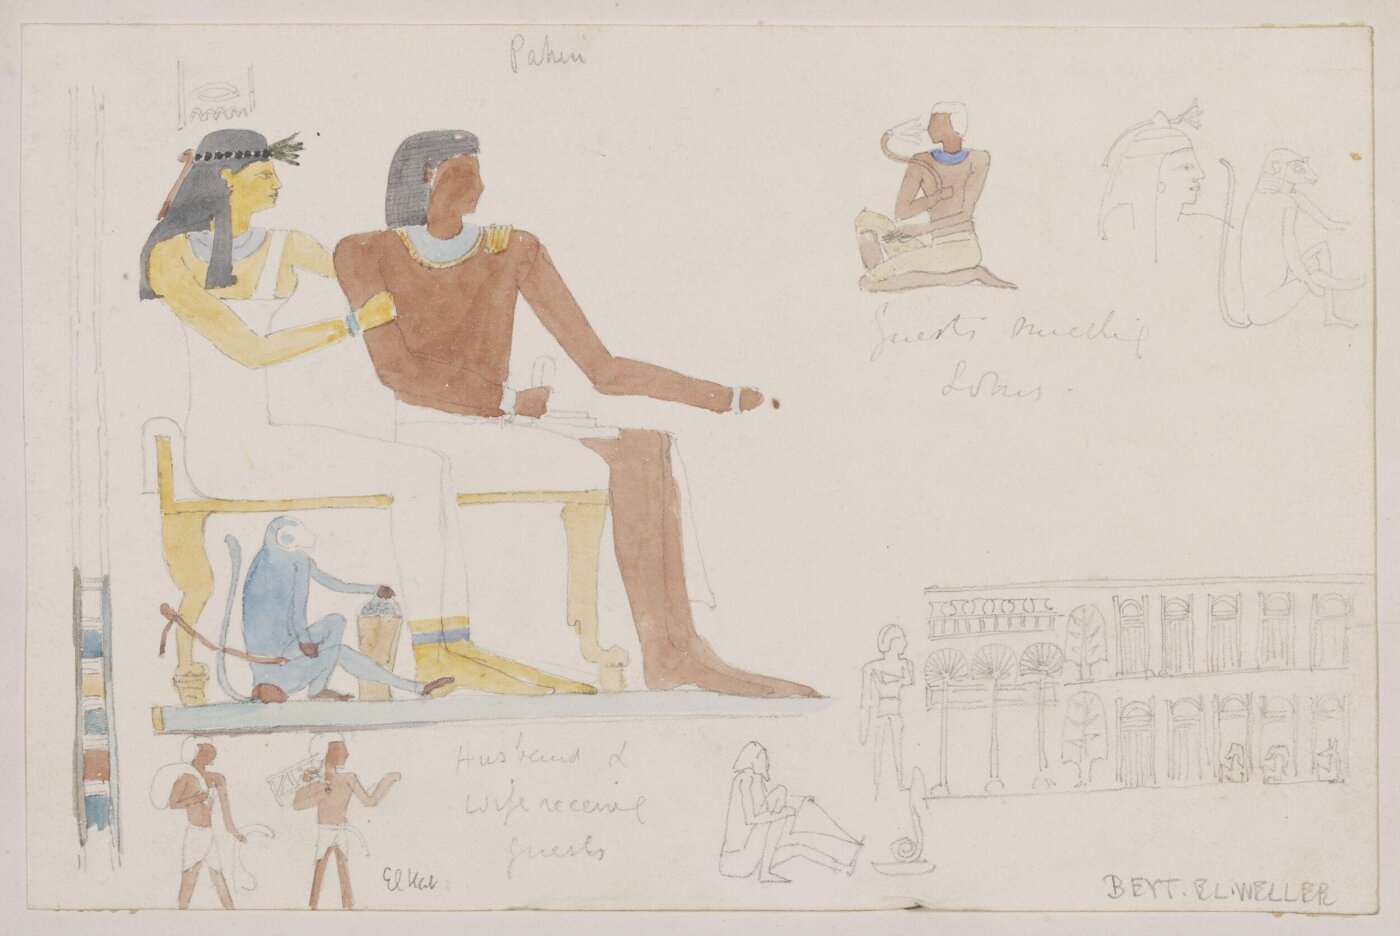 Paheri
Guests smelling
Lotus -
Husband &
wife receiving
guests
El Kab
BEYT. EL. WELLER